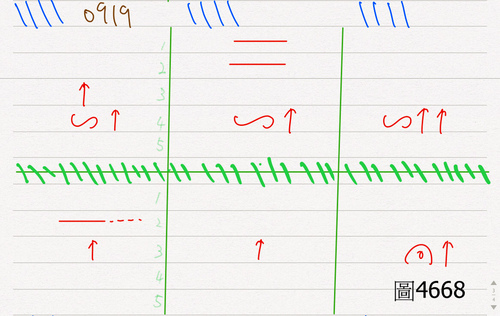 0919
1
2
3
4
5
1
2
3
4
5
圖4668